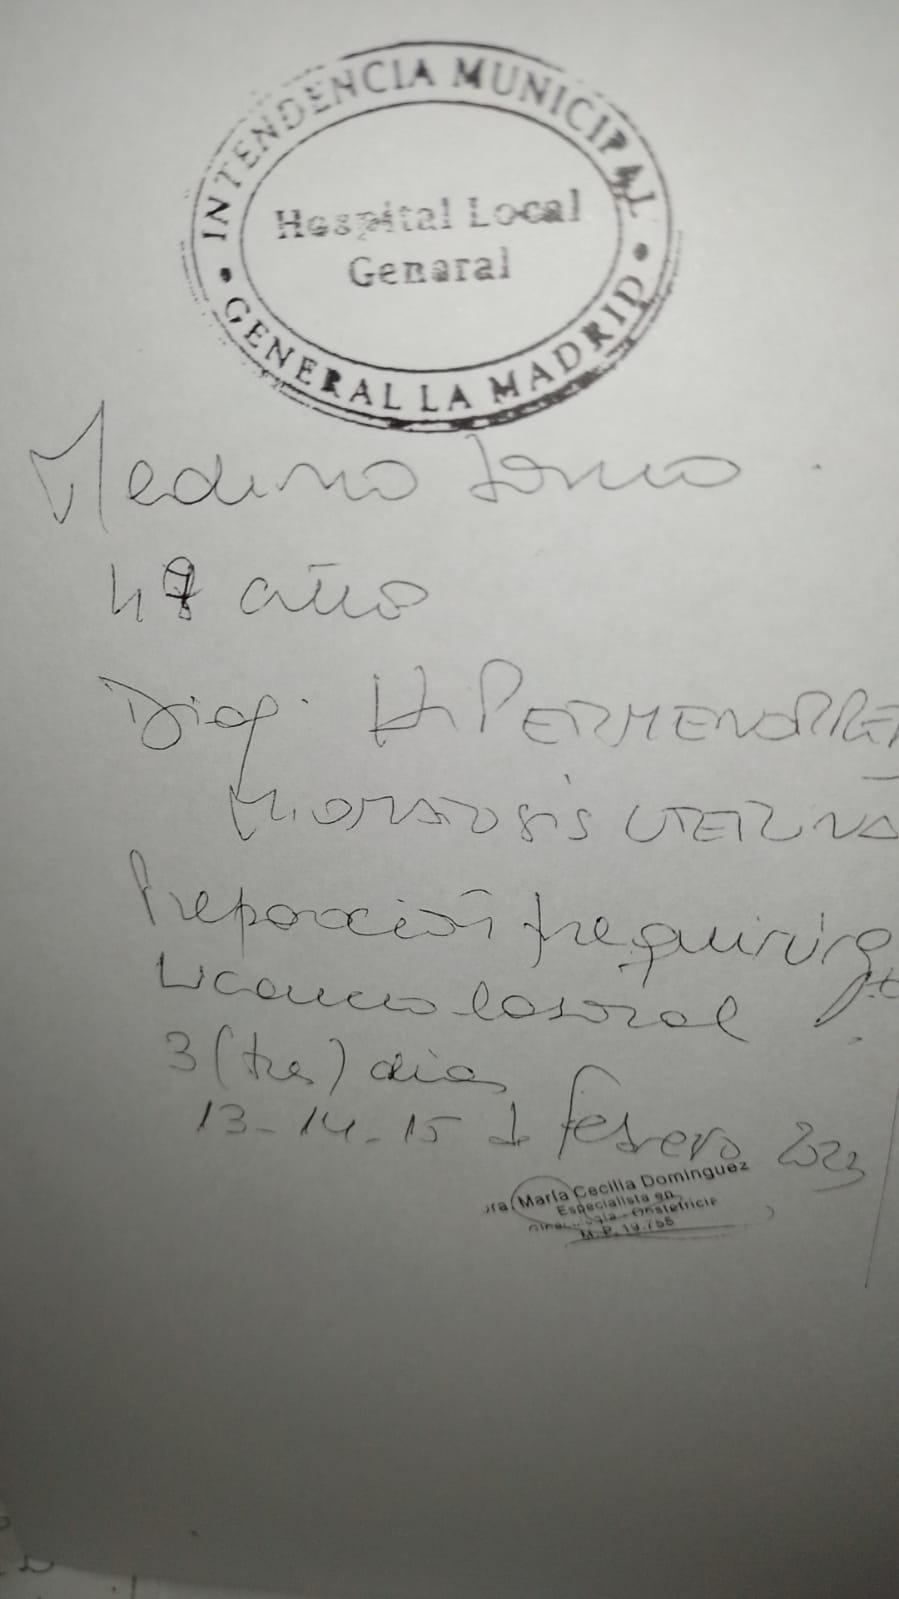 INTENDENCIA MUNICIPAL
Hospital Local
General
GENERAL LA MADRID
Medina
años
Diag. HIPERMENORREA
MIOMATOSIS UTERINA
Preparación prequirúrg
Licencia laboral
3 (tres) días
13-14-15 de febrero 2023
María Cecilia Dominguez
Especialista en
Ginecología - Obstetricia
M.P. 19.755